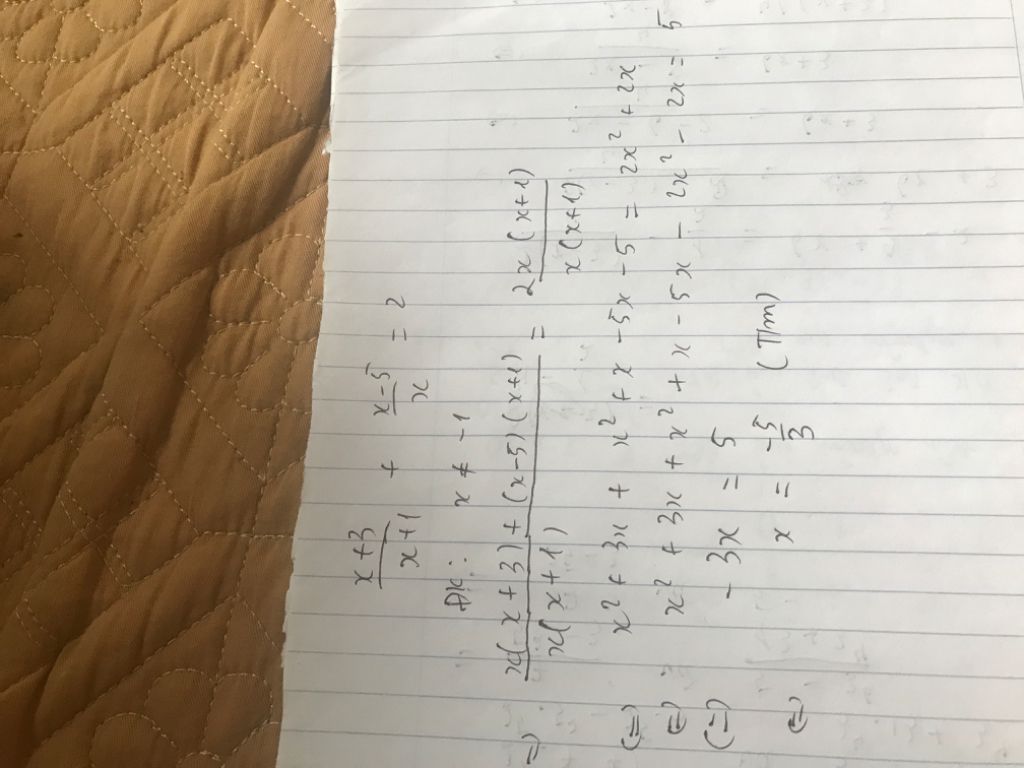 x+3/x+1 + x-5/x = 2
ĐK: x ≠ -1
=> x(x+3)+(x-5)(x+1)/x(x+1) = 2x(x+1)/x(x+1)
(=) x² + 3x + x² + x - 5x - 5 = 2x² + 2x
(=) x² + 3x + x² + x - 5x - 2x² - 2x = 5
(=) - 3x = 5
(=) x = -5/3 (T/m)